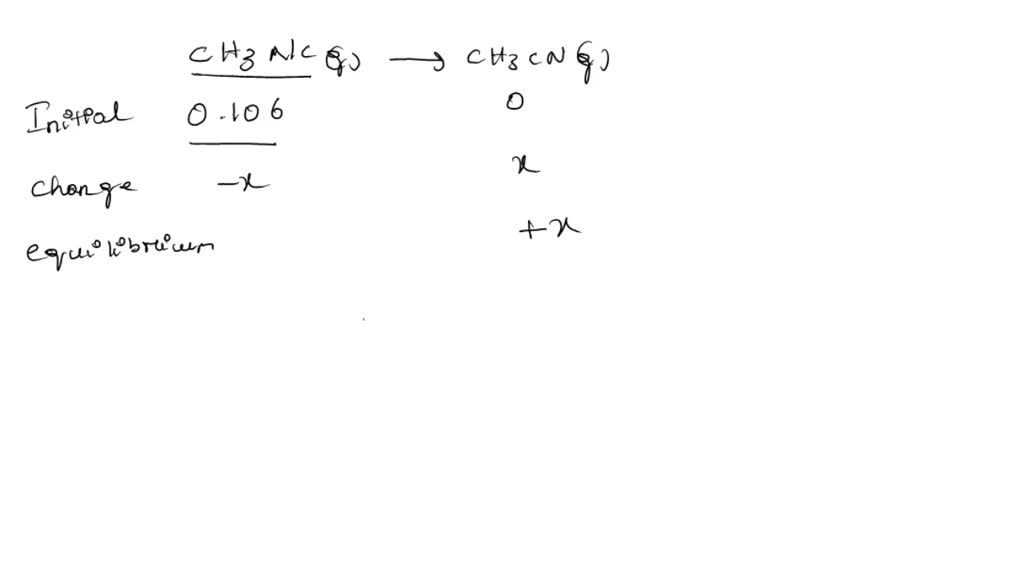 CH3NC (g) → CH3CN (g)
Initial 0.106 0
change -x x
equilibrium +x